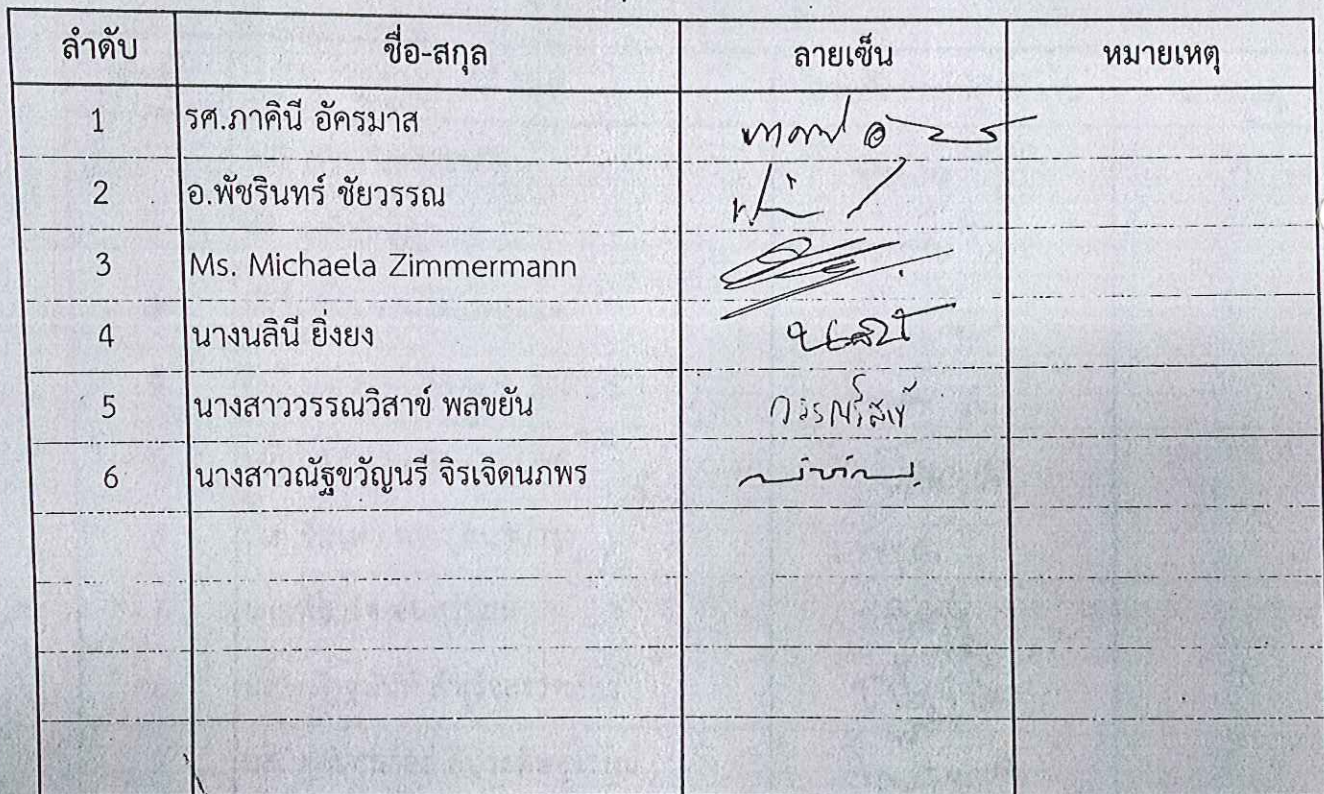 ลำดับ ชื่อ-สกุล ลายเซ็น หมายเหตุ
1 รศ.ภาคินี อัครมาส
2 อ.พัชรินทร์ ชัยวรรณ
3 Ms. Michaela Zimmermann
4 นางนลินี ยิ่งยง
5 นางสาววรรณวิสาข์ พลขยัน วรรณวิสาข์
6 นางสาวณัฐขวัญนรี จิรเจิดนภพร